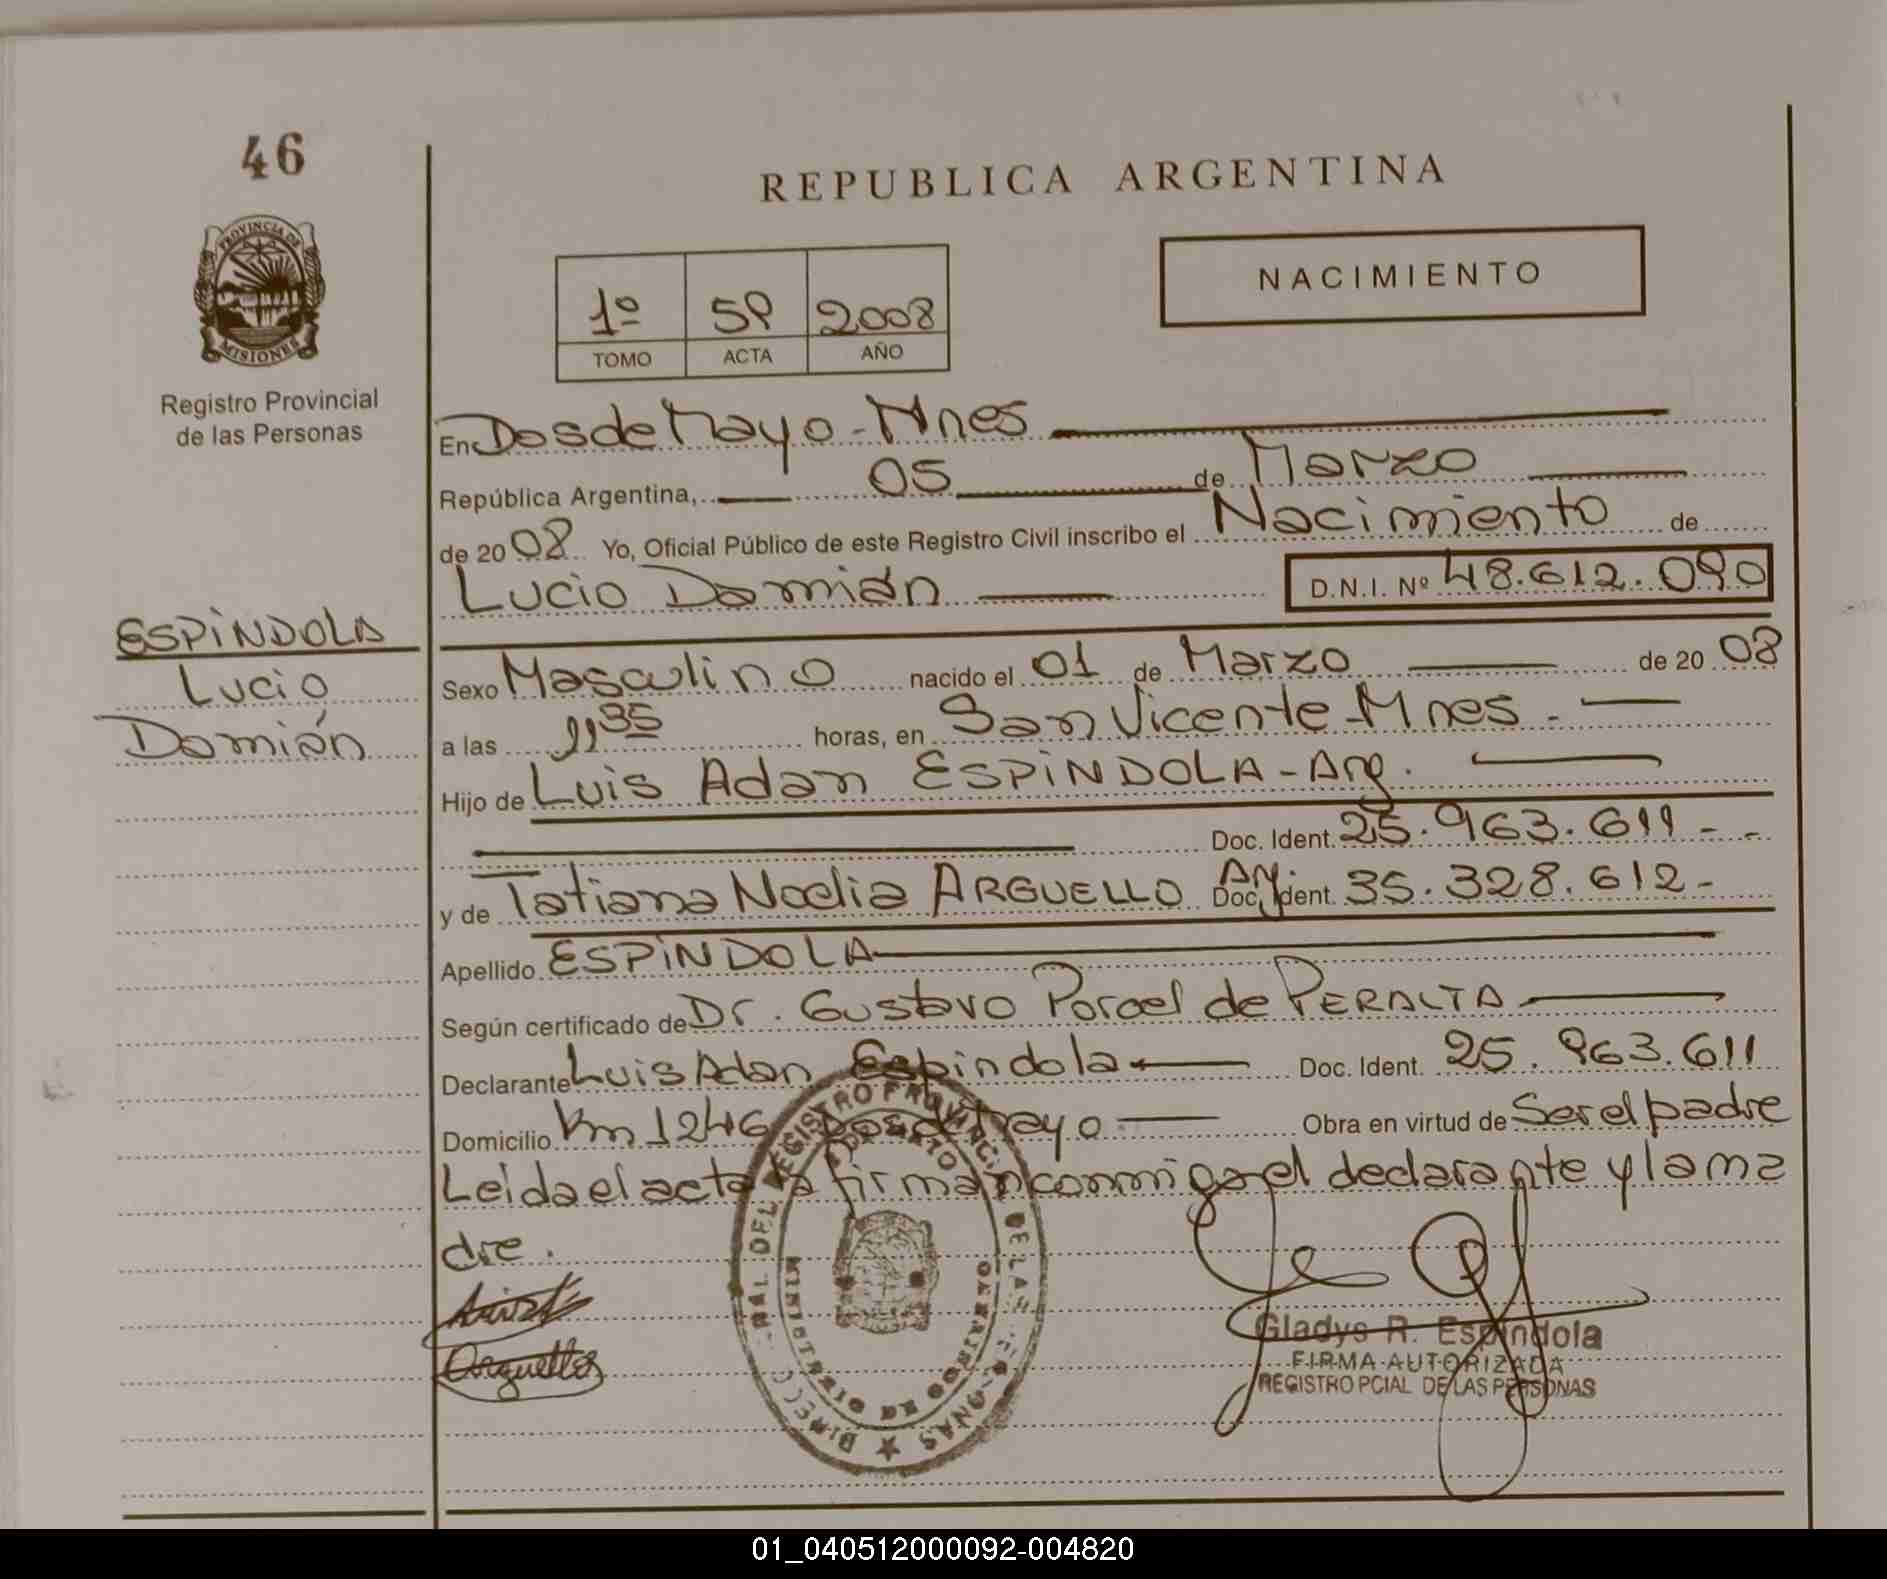 46
REPUBLICA ARGENTINA
PROVINCIA DE
MISIONES
Registro Provincial
de las Personas
NACIMIENTO
1º 59 2008
TOMO ACTA AÑO
En Dos de Mayo - Mnes
República Argentina, 05 de Marzo
de 2008 Yo, Oficial Público de este Registro Civil inscribo el Nacimiento de
Lucio Damián D.N.I. Nº 48.612.090
ESPINDOLA
Lucio
Damián
Sexo Masculino nacido el 01 de Marzo de 2008
a las 11 35 horas, en San Vicente - Mnes -
Hijo de Luis Adan ESPINDOLA - Arg.
Doc. Ident. 25.963.611 - -
y de Tatiana Noelia ARGUELLO Arg. Doc. Ident. 35.328.612 -
Apellido ESPINDOLA
Según certificado de Dr. Gustavo Porael de PERALTA
Declarante Luis Adan Espindola Doc. Ident. 25.963.611
Domicilio Km 1246 Dos de Mayo Obra en virtud de Ser el padre
Leida el acta la firman conmigo el declarante y la ma
dre.
Arguello
Gladys R. Espindola
FIRMA AUTORIZADA
REGISTRO PCIAL DE LAS PERSONAS
01_040512000092-004820